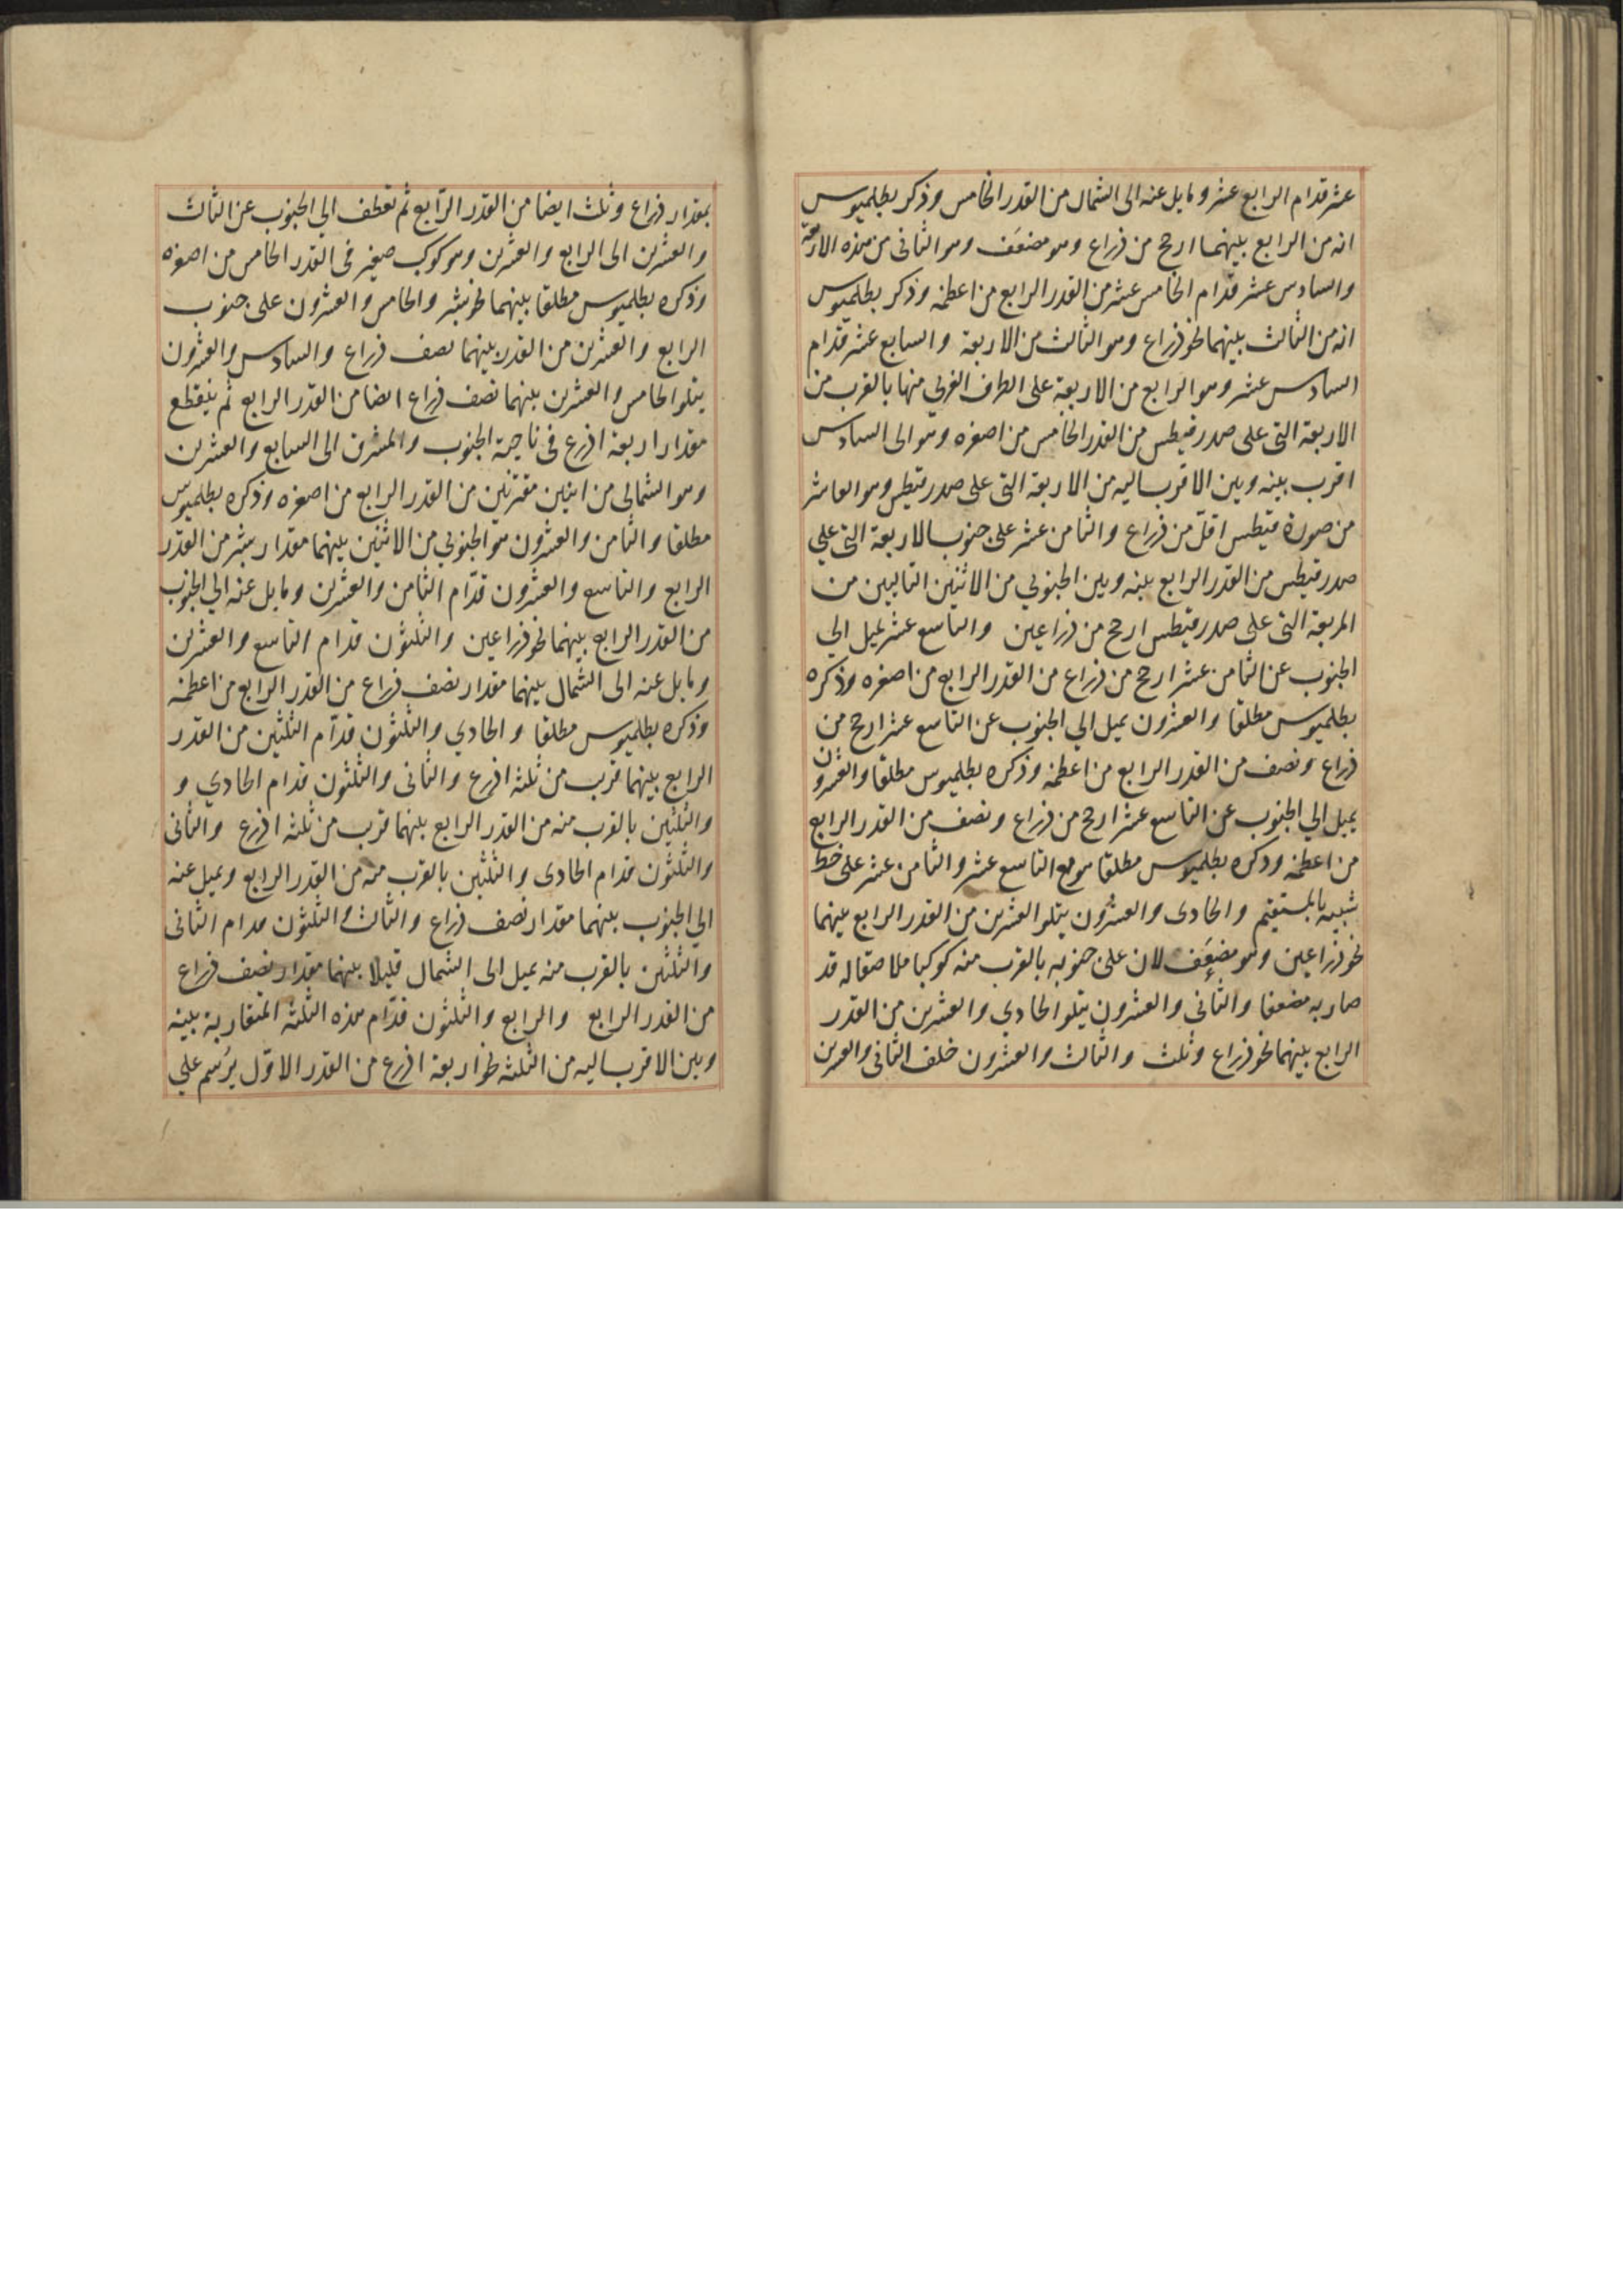 عشر قدام الرابع عشر ومايل عنه الى الشمال من القدر الخامس وذكر بطلميوس
انه من الرابع بينهما ارجح من ذراع وهو مضعف وهو الثانى من هذه الاربعة
والسادس عشر قدام الخامس عشر من القدر الرابع من اعظمه وذكر بطلميوس
انه من الثالث بينهما نحو ذراع وهو الثالث من الاربعة والسابع عشر قدام
السادس عشر وهو الرابع من الاربعة على الطرف الغربي منها بالقرب من
الاربعة التى على صدر قيطس من القدر الخامس من اصغره وهو الى السادس
اقرب بينه وبين الاقرب اليه من الاربعة التى على صدر قيطس وهو العاشر
من صورة قيطس اقل من ذراع والثامن عشر على جنوب الاربعة التى علي
صدر قيطس من القدر الرابع بينه وبين الجنوبي من الاثنين التاليين من
المربعة التى على صدر قيطس ارجح من ذراعين والتاسع عشر يميل الي
الجنوب عن الثامن عشر ارجح من ذراع من القدر الرابع من اصغره وذكره
بطلميوس مطلقا والعشرون يميل الي الجنوب عن التاسع عشر ارجح من
ذراع ونصف من القدر الرابع من اعظمه وذكره بطلميوس مطلقا والعشرون
يميل الي الجنوب عن التاسع عشر ارجح من ذراع ونصف من القدر الرابع
من اعظمه وذكره بطلميوس مطلقا مع التاسع عشر والثامن عشر على خط
شبيه بالمستقيم والحادى والعشرون يتلو العشرين من القدر الرابع بينهما
نحو ذراعين وهو مضعف لان على جنوبه بالقرب منه كوكبا ملاصقا له قد
صار به مضعفا والثاني والعشرون يتلو الحادي والعشرين من القدر
الرابع بينهما نحو ذراع وثلث والثالث والعشرون خلف الثانى والعسرين
بمقدار ذراع وثلث ايضا من القدر الرابع ثم تعطف الي الجنوب عن الثالث
والعشرين الى الرابع والعشرين وهو كوكب صغير فى القدر الخامس من اصغره
وذكره بطلميوس مطلقا بينهما نحو شبر والخامس والعشرون على جنوب
الرابع والعشرين من القدر بينهما نصف ذراع والسادس والعشرون
يتلو الخامس والعشرين بينهما نصف ذراع ايضا من القدر الرابع ثم ينقطع
مقدار اربعة اذرع فى ناحية الجنوب والمشرق الى السابع والعشرين
وهو الشمالى من اثنين مقترنين من القدر الرابع من اصغره وذكره بطلميوس
مطلقا والثامن والعشرون هو الجنوبي من الاثنين بينهما مقدار شبر من القدر
الرابع والتاسع والعشرون قدام الثامن والعشرين ومايل عنه الي الجنوب
من القدر الرابع بينهما نحو ذراعين والثلثون قدام التاسع والعشرين
ومايل عنه الى الشمال بينهما مقدار نصف ذراع من القدر الرابع من اعظمه
وذكره بطلميوس مطلقا والحادي والثلثون قدام الثلثين من القدر
الرابع بينهما قرب من ثلثة اذرع والثانى والثلثون قدام الحادي و
والثلثين بالقرب منه من القدر الرابع بينهما قرب من ثلثة اذرع والثانى
والثلثون قدام الحادى والثلثين بالقرب منه من القدر الرابع ويميل عنه
الي الجنوب بينهما مقدار نصف ذراع والثالث والثلثون قدام الثانى
والثلثين بالقرب منه يميل الى الشمال قليلا بينهما مقدار نصف ذراع
من القدر الرابع والرابع والثلثون قدام هذه الثلثة المتقاربة بينه
وبين الاقرب اليه من الثلثة نحو اربعة اذرع من القدر الاول يرسم علي